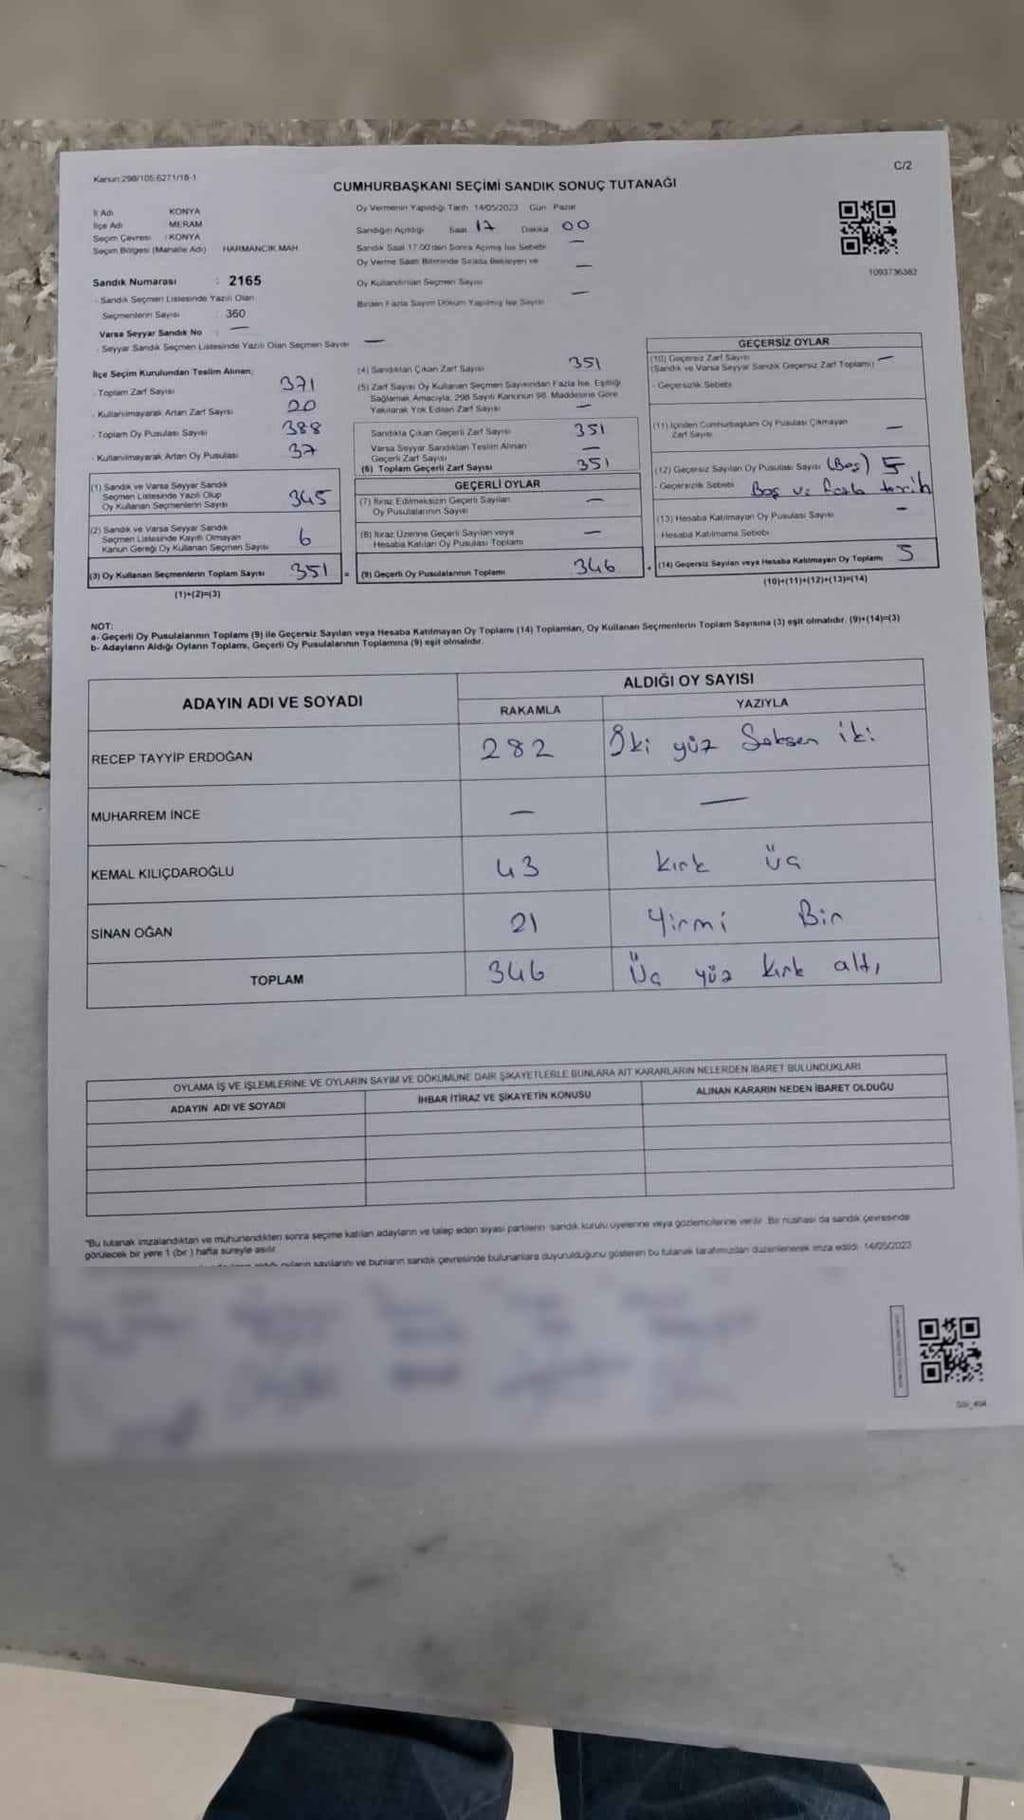 Kanun:298/105:6271/18-1
C/2
CUMHURBAŞKANI SEÇİMİ SANDIK SONUÇ TUTANAĞI
İl Adı KONYA
İlçe Adı MERAM
Seçim Çevresi : KONYA
Seçim Bölgesi (Mahalle Adı) HARMANCIK MAH
Sandık Numarası : 2165
- Sandık Seçmen Listesinde Yazılı Olan
Seçmenlerin Sayısı 360
Varsa Seyyar Sandık No —
- Seyyar Sandık Seçmen Listesinde Yazılı Olan Seçmen Sayısı —
Oy Vermenin Yapıldığı Tarih 14/05/2023 Gün Pazar
Sandığın Açıldığı Saat 17 Dakika 00
Sandık Saat 17:00'den Sonra Açılmış İse Sebebi —
Oy Verme Saati Bitiminde Sırada Bekleyen ve
Oy Kullandırılan Seçmen Sayısı —
Birden Fazla Sayım Döküm Yapılmış İse Sayısı —
1093736382
İlçe Seçim Kurulundan Teslim Alınan;
- Toplam Zarf Sayısı 371
- Kullanılmayarak Artan Zarf Sayısı 20
- Toplam Oy Pusulası Sayısı 388
- Kullanılmayarak Artan Oy Pusulası 37
(1) Sandık ve Varsa Seyyar Sandık
Seçmen Listesinde Yazılı Olup
Oy Kullanan Seçmenlerin Sayısı 345
(2) Sandık ve Varsa Seyyar Sandık
Seçmen Listesinde Kayıtlı Olmayan
Kanun Gereği Oy Kullanan Seçmen Sayısı 6
(3) Oy Kullanan Seçmenlerin Toplam Sayısı 351
(1)+(2)=(3)
(4) Sandıktan Çıkan Zarf Sayısı 351
(5) Zarf Sayısı Oy Kullanan Seçmen Sayısından Fazla İse, Eşitliği
Sağlamak Amacıyla, 298 Sayılı Kanunun 98. Maddesine Göre
Yakılarak Yok Edilen Zarf Sayısı —
Sandıkta Çıkan Geçerli Zarf Sayısı 351
Varsa Seyyar Sandıktan Teslim Alınan
Geçerli Zarf Sayısı —
(6) Toplam Geçerli Zarf Sayısı 351
GEÇERLİ OYLAR
(7) İtiraz Edilmeksizin Geçerli Sayılan
Oy Pusulalarının Sayısı —
(8) İtiraz Üzerine Geçerli Sayılan veya
Hesaba Katılan Oy Pusulası Toplamı —
= (9) Geçerli Oy Pusulalarının Toplamı 346
GEÇERSİZ OYLAR
(10) Geçersiz Zarf Sayısı
(Sandık ve Varsa Seyyar Sandık Geçersiz Zarf Toplamı) —
- Geçersizlik Sebebi
(11) İçinden Cumhurbaşkanı Oy Pusulası Çıkmayan
Zarf Sayısı —
(12) Geçersiz Sayılan Oy Pusulası Sayısı (Boş) 5
- Geçersizlik Sebebi Boş ve fazla tercih
(13) Hesaba Katılmayan Oy Pusulası Sayısı —
Hesaba Katılmama Sebebi
+ (14) Geçersiz Sayılan veya Hesaba Katılmayan Oy Toplamı 5
(10)+(11)+(12)+(13)=(14)
NOT:
a- Geçerli Oy Pusulalarının Toplamı (9) ile Geçersiz Sayılan veya Hesaba Katılmayan Oy Toplamı (14) Toplamları, Oy Kullanan Seçmenlerin Toplam Sayısına (3) eşit olmalıdır. (9)+(14)=(3)
b- Adayların Aldığı Oyların Toplamı, Geçerli Oy Pusulalarının Toplamına (9) eşit olmalıdır.
ADAYIN ADI VE SOYADI
ALDIĞI OY SAYISI
RAKAMLA YAZIYLA
RECEP TAYYİP ERDOĞAN 282 İki yüz Seksen iki
MUHARREM İNCE — —
KEMAL KILIÇDAROĞLU 43 Kırk üç
SİNAN OĞAN 21 Yirmi Bir
TOPLAM 346 Üç yüz Kırk altı
OYLAMA İŞ VE İŞLEMLERİNE VE OYLARIN SAYIM VE DÖKÜMÜNE DAİR ŞİKAYETLERLE BUNLARA AİT KARARLARIN NELERDEN İBARET BULUNDUKLARI
ADAYIN ADI VE SOYADI İHBAR İTİRAZ VE ŞİKAYETİN KONUSU ALINAN KARARIN NEDEN İBARET OLDUĞU
"Bu tutanak imzalandıktan ve mühürlendikten sonra seçime katılan adayların ve talep eden siyasi partilerin sandık kurulu üyelerine veya gözlemcilerine verilir. Bir nüshası da sandık çevresinde
görülecek bir yere 1 (bir) hafta süreyle asılır.
oyların sayılarını ve bunların sandık çevresinde bulunanlara duyurulduğunu gösteren bu tutanak tarafımızdan düzenlenerek imza edildi. 14/05/2023